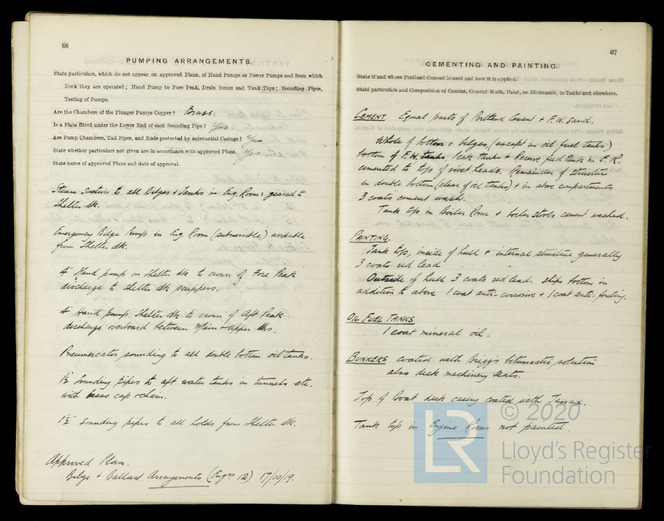 66
PUMPING ARRANGEMENTS.
State particulars, which do not appear on approved Plans, of Hand Pumps or Power Pumps and from which
Deck they are operated; Hand Pump to Fore Peak, Drain Boxes and Tank Tops; Sounding Pipes,
Testing of Pumps.
Are the Chambers of the Plunger Pumps Copper? Brass.
Is a Plate fitted under the Lower End of each Sounding Pipe? Yes.
Are Pump Chambers, Tail Pipes, and Ends protected by substantial Casings? Yes
State whether particulars not given are in accordance with approved Plans. Yes.
State name of approved Plans and date of approval.
Steam Suction to all Bilges & Tanks in Eng Room geared to
Shelter dk.
Emergency Bilge Pump in Eng Room (submersible) workable
from Shelter dk.
4" Hand pump on Shelter dk to crown of Fore Peak
discharge to Shelter dk scuppers.
4" Hand pump Shelter dk to crown of Aft Peak
discharge overboard between Main & Upper dks.
Pneumercator sounding to all double bottom oil tanks.
1½" Sounding pipes to aft water tanks in tunnels etc.
with brass cap & chain.
1½" Sounding pipes to all holds from Shelter dk.
Approved Plan.
Bilge & Ballast Arrangements (Engrs 12) 17/10/19.
67
CEMENTING AND PAINTING.
State if and where Portland Cement is used and how it is applied.
State particulars and Composition of Cement, Cement Wash, Paint, or Bitumastic, in Tanks and elsewhere.
CEMENT Equal parts of Portland Cement & F.W. Sand.
Whole of bottom & bilges (except in oil fuel tanks)
bottom of F.W. tanks, peak tanks & reserve feed tank in E.R.
cemented to tops of rivet heads. Remainder of structure
in double bottom (clear of oil tanks) & in above compartments
3 coats cement wash.
Tank top in Boiler Room & boiler stools cement washed.
PAINTING.
Tank top, inside of hull & internal structure generally
3 coats red lead
Outside of hull 3 coats red lead. Ships bottom in
addition to above 1 coat anti-corrosive & 1 coat anti-fouling.
OIL FUEL TANKS
1 coat mineral oil.
BUNKERS coated with Briggs bitumastic solution
also deck machinery seats.
Top of Boat deck casing coated with
Tank top in Engine Room not painted.
LR
© 2020
Lloyd's Register
Foundation